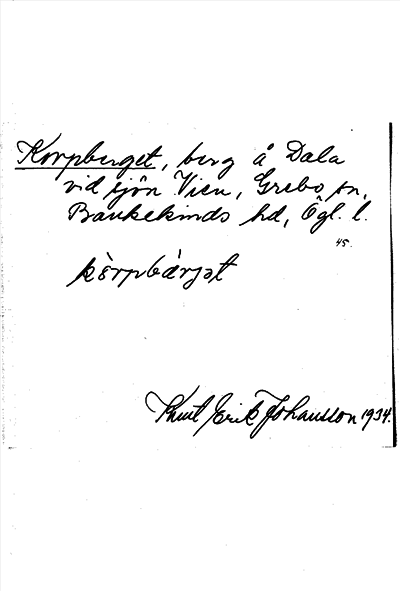 Korpberget, berg å Dala
vid sjön Vien, Grebo sn,
Bankekinds hd, Ögl. l.
45.
kòrpbárjət
Knut Erik Johansson 1934.